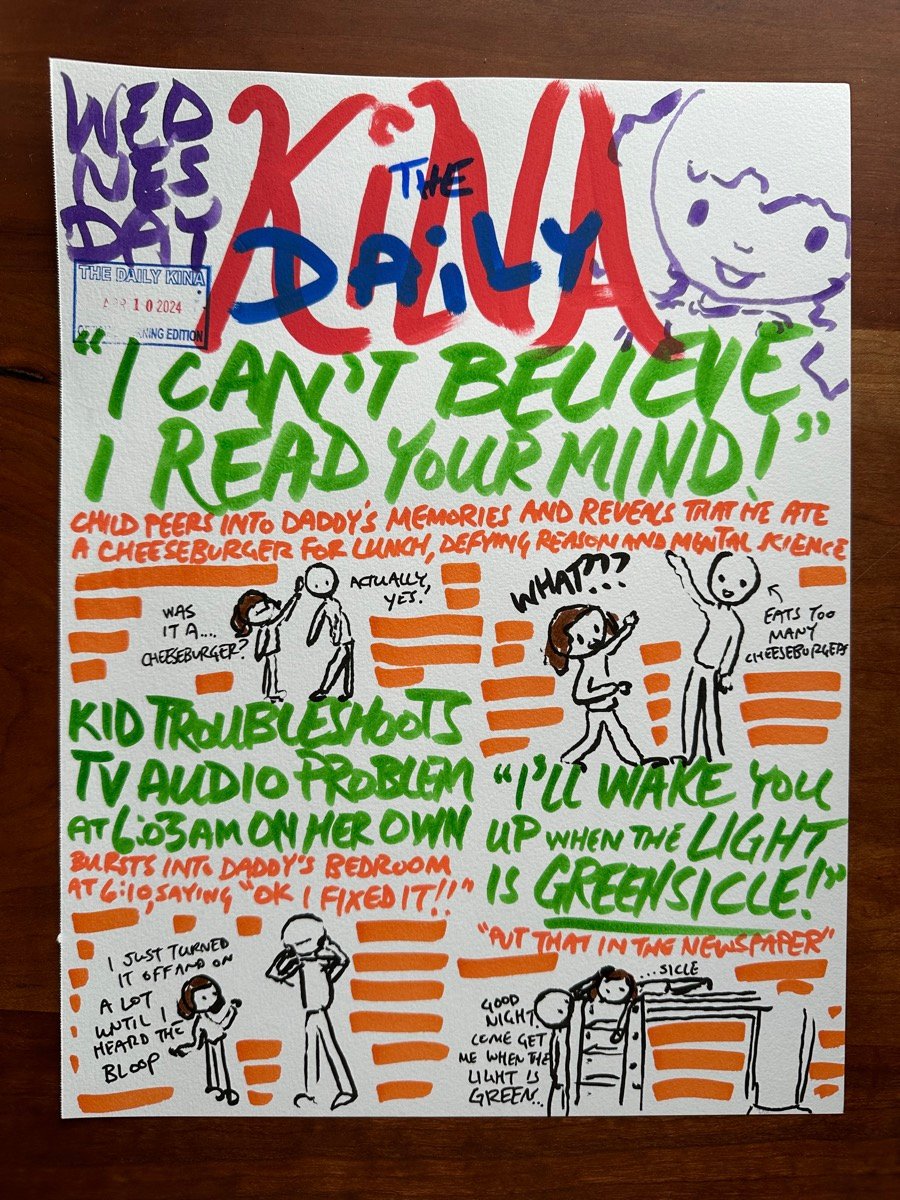 WED
NES
DAY
THE
DAILY
KINA
THE DAILY KINA
APR 10 2024
NING EDITION
"I CAN'T BELIEVE
I READ YOUR MIND!"
CHILD PEERS INTO DADDY'S MEMORIES AND REVEALS THAT HE ATE
A CHEESEBURGER FOR LUNCH, DEFYING REASON AND MENTAL SCIENCE
WAS
IT A....
CHEESEBURGER?
ACTUALLY,
YES!
WHAT???
EATS TOO
MANY
CHEESEBURGERS
KID TROUBLESHOOTS
TV AUDIO PROBLEM
AT 6:03AM ON HER OWN
BURSTS INTO DADDY'S BEDROOM
AT 6:10, SAYING "OK I FIXED IT!!"
I JUST TURNED
IT OFF AND ON
A LOT
UNTIL I
HEARD THE
BLOOP
"I'LL WAKE YOU
UP WHEN THE LIGHT
IS GREENSICLE!"
"PUT THAT IN THE NEWSPAPER"
GOOD
NIGHT,
COME GET
ME WHEN THE
LIGHT IS
GREEN...
...SICLE